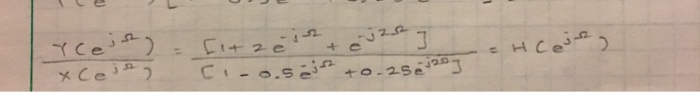 Y(e^{jΩ}) / X(e^{jΩ}) = [1 + 2e^{-jΩ} + e^{-j2Ω}] / [1 - 0.5e^{-jΩ} + 0.25e^{-j2Ω}] = H(e^{jΩ})